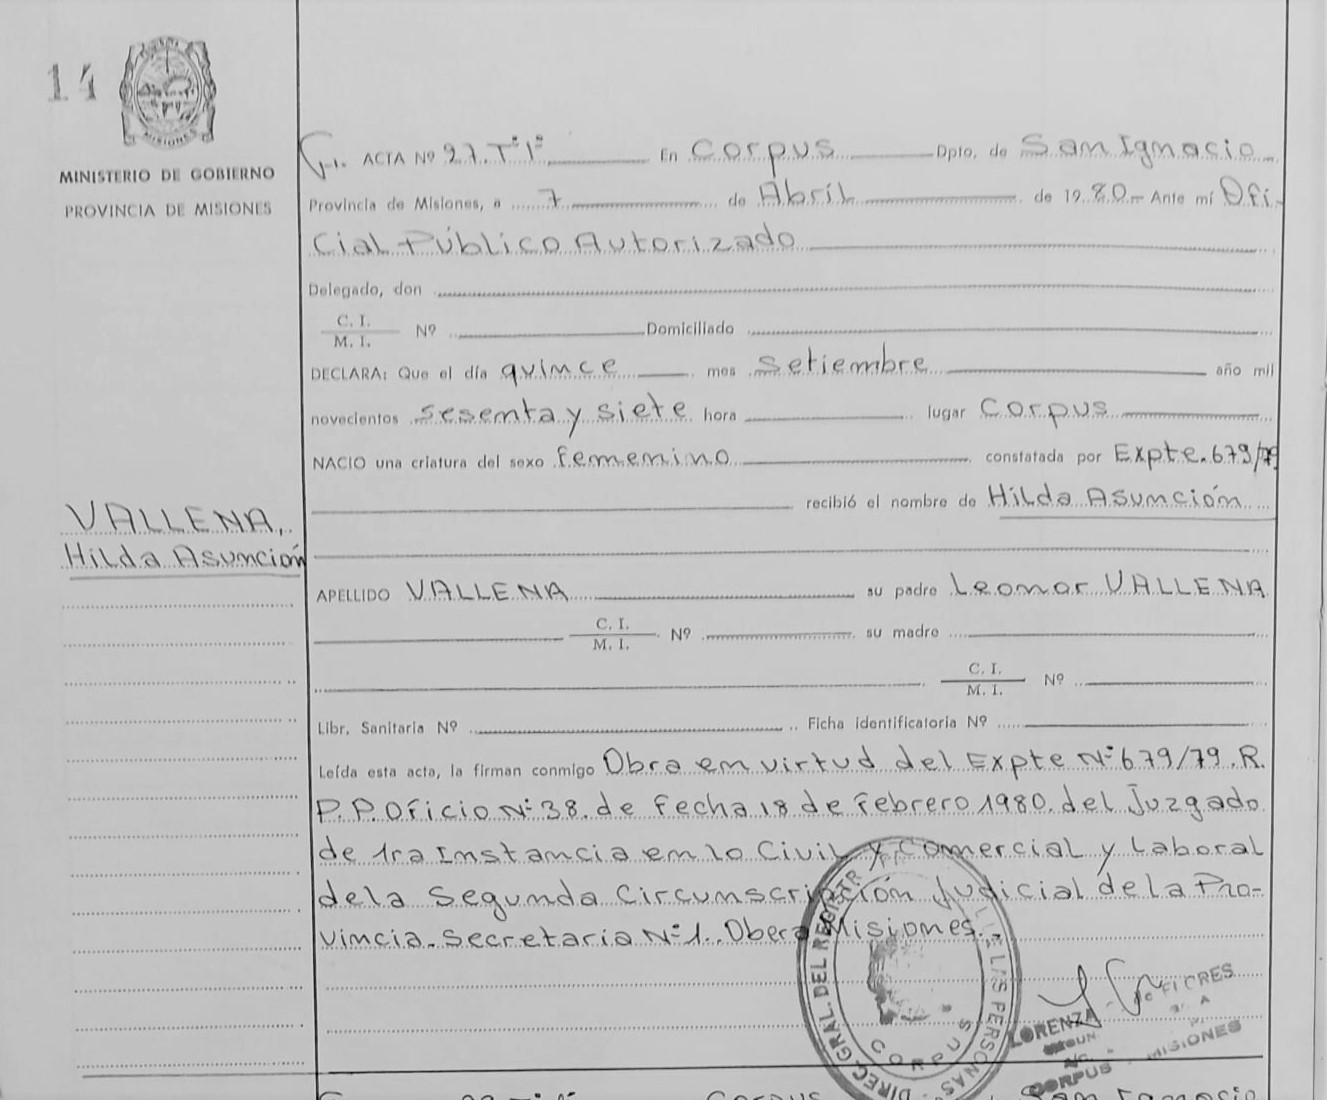 14
MISIONES
MINISTERIO DE GOBIERNO
PROVINCIA DE MISIONES
ACTA Nº 27. Tº 1º En Corpus Dpto. de San Ignacio
Provincia de Misiones, a 7 de Abril de 1980.- Ante mí Ofi-
cial Público Autorizado
Delegado, don
C. I.
M. I. Nº Domiciliado
DECLARA: Que el día quince mes setiembre año mil
novecientos sesenta y siete hora lugar Corpus
NACIO una criatura del sexo femenino constatada por Expte. 679/79
recibió el nombre de Hilda Asunción
VALLENA,
Hilda Asunción
APELLIDO VALLENA su padre Leonor VALLENA
C. I.
M. I. Nº su madre
C. I.
M. I. Nº
Libr. Sanitaria Nº Ficha identificatoria Nº
Leída esta acta, la firman conmigo Obra en virtud del Expte Nº 679/79. R.
P.P. Oficio Nº 38. de fecha 18 de febrero 1980. del Juzgado
de 1ra Instancia en lo Civil y Comercial y Laboral
de la Segunda Circunscripción Judicial de la Pro-
vincia. Secretaria Nº 1. Obera Misiones.-
DIREC. GRAL. DEL REGISTR PERSONAS
CORPUS
LORENZA
CORPUS - MISIONES